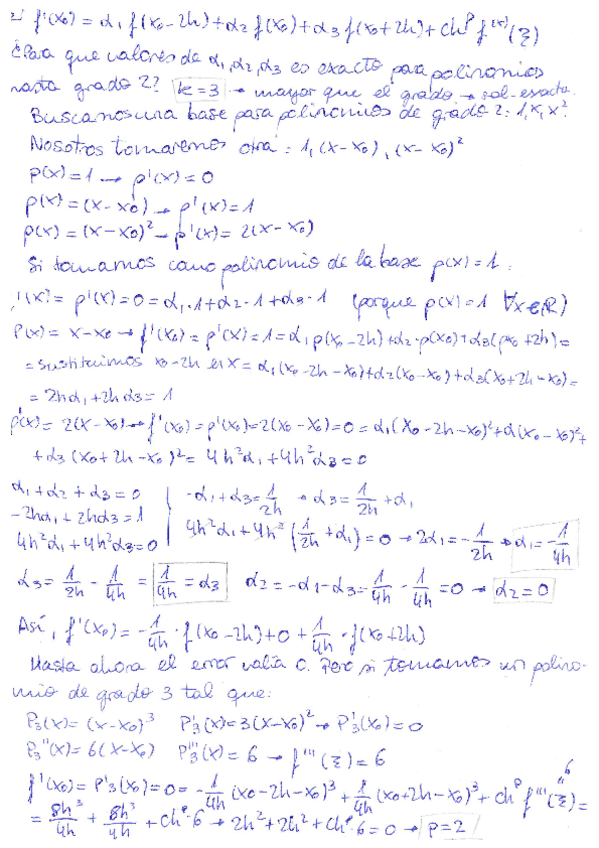 2) f'(x₀) = α₁ f(x₀-2h) + α₂ f(x₀) + α₃ f(x₀+2h) + Ch^p f^(k)(ξ)
¿Para que valores de α₁, α₂, α₃ es exacto para polinomios
hasta grado 2? k=3 → mayor que el grado → sol. exacta.
Buscamos una base para polinomios de grado 2: 1, x, x².
Nosotros tomaremos otra: 1, (x-x₀), (x-x₀)²
p(x) = 1 → p'(x) = 0
p(x) = (x-x₀) → p'(x) = 1
p(x) = (x-x₀)² → p'(x) = 2(x-x₀)
Si tomamos como polinomio de la base p(x) = 1:
'(x) = p'(x) = 0 = α₁·1 + α₂·1 + α₃·1 (porque p(x) = 1 ∀x∈ℝ)
P(x) = x-x₀ → f'(x₀) = p'(x) = 1 = α₁ p(x₀-2h) + α₂·p(x₀) + α₃(p x₀+2h) =
= sustituimos x₀-2h en x = α₁(x₀-2h-x₀) + α₂(x₀-x₀) + α₃(x₀+2h-x₀) =
= 2hα₁ + 2hα₃ = 1
p'(x) = 2(x-x₀) → f'(x₀) = p'(x₀) = 2(x₀-x₀) = 0 = α₁(x₀-2h-x₀)² + α(x₀-x₀)² +
+ α₃(x₀+2h-x₀)² = 4h²α₁ + 4h²α₃ = 0
α₁ + α₂ + α₃ = 0 | -α₁ + α₃ = 1/2h → α₃ = 1/2h + α₁
-2hα₁ + 2hα₃ = 1
4h²α₁ + 4h²α₃ = 0 | 4h²α₁ + 4h²(1/2h + α₁) = 0 → 2α₁ = -1/2h → α₁ = -1/4h
α₃ = 1/2h - 1/4h = 1/4h = α₃ α₂ = -α₁ - α₃ = 1/4h - 1/4h = 0 → α₂ = 0
Así, f'(x₀) = -1/4h · f(x₀-2h) + 0 + 1/4h · f(x₀+2h)
Hasta ahora el error valía 0. Pero si tomamos un polino-
mio de grado 3 tal que:
P₃(x) = (x-x₀)³ P₃'(x) = 3(x-x₀)² → P₃'(x₀) = 0
P₃''(x) = 6(x-x₀) P₃'''(x) = 6 → f'''(ξ) = 6
f'(x₀) = P₃'(x₀) = 0 = -1/4h (x₀-2h-x₀)³ + 1/4h (x₀+2h-x₀)³ + Ch^p f'''(ξ) =
= 8h³/4h + 8h³/4h + Ch^p·6 → 2h² + 2h² + Ch^p·6 = 0 → p=2